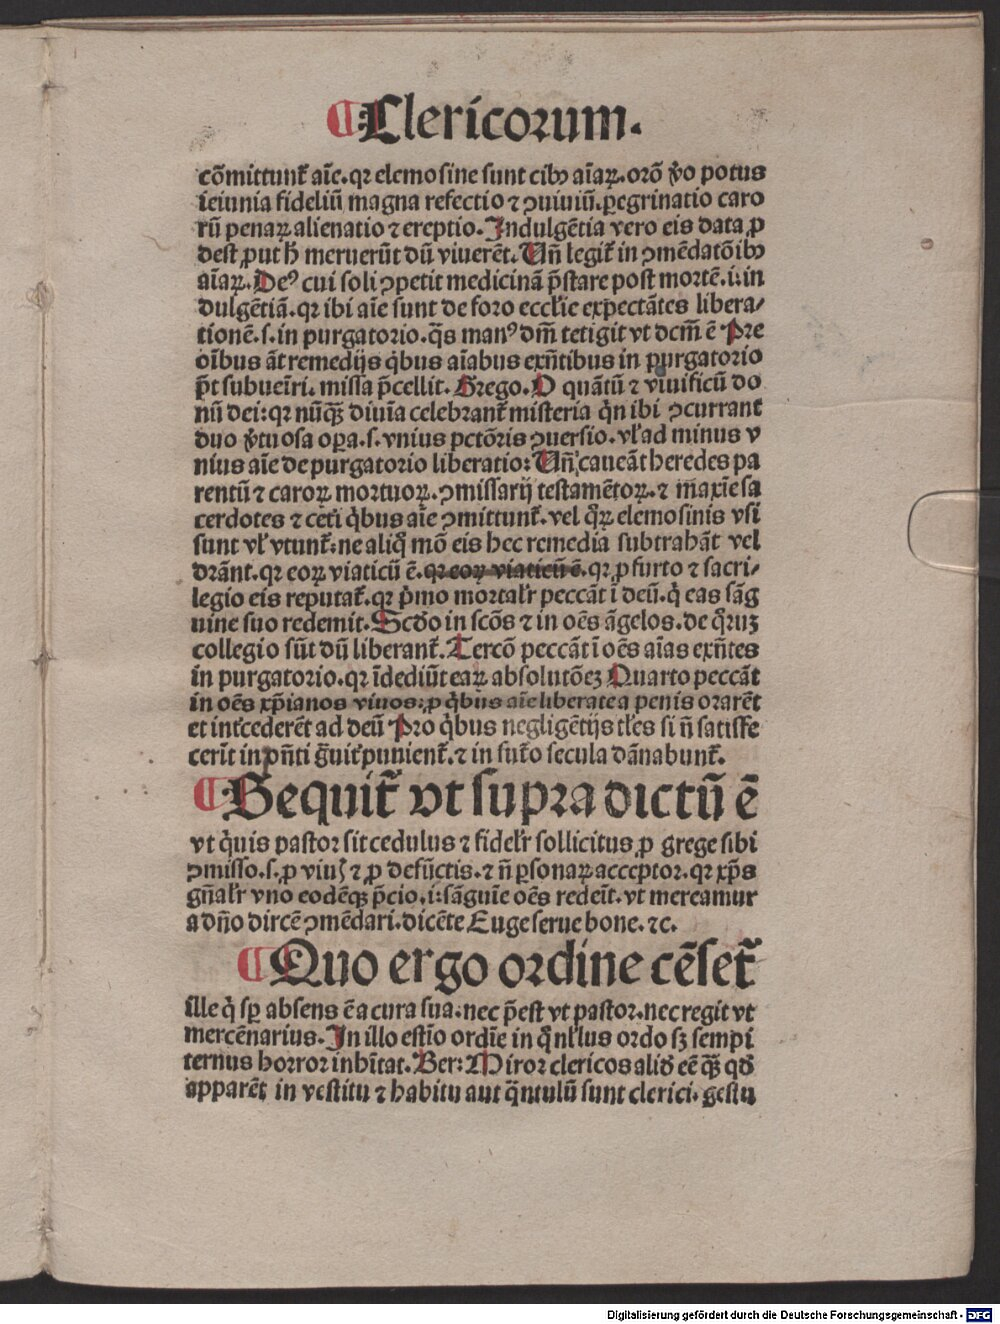 ¶Clericorum.
cōmittunt᷑ aīe.qꝛ elemosine sunt cibꝰ aīaꝝ.orō ṽo potus
ieiunia fideliū magna refectio ⁊ ꝯuiuiū.ꝑegrinatio caro
rū penaꝝ alienatio ⁊ ereptio.Indulgētia vero eis data ꝓ
dest ꝓut hͫ meruerūt dū viuerēt.Uñ legit᷑ in ꝯmēdatōibꝰ
aīaꝝ.Deꝰ cui soli ꝯpetit medicinā p̄stare post mortē.i:in
dulgētiā.qꝛ ibi aīe sunt de foro eccłie expectātes libera/
tionē.s.in purgatorio.q̄s manꝰ dm̄ tetigit vt dcm̄ ē Pre
oībus āt remedijs q̇bus aīabus exn̄tibus in purgatorio
p̄t subueīri.missa p̄cellit.Grego.O quātū ⁊ viuificū do
nū dei:qꝛ nūꝗ̄ diuīa celebrant᷑ misteria q̇n ibi ꝯcurrant
duo ṽtuosa oꝑa.s.vnius pctōris ꝯuersio.vł ad minus v
nius aīe de purgatorio liberatio:Uñ caueāt heredes pa
rentū ⁊ caroꝝ mortuoꝝ.ꝯmissarij testamētoꝝ.⁊ maxīe sa
cerdotes ⁊ cet̃i q̇bus aīe ꝯmittunt᷑.vel q̊ꝝ elemosinis vsi
sunt vł vtunt᷑:ne aliq̊ mō eis hec remedia subtrahāt vel
drānt.qꝛ eoꝝ viaticū ē.qꝛ eoꝝ viaticū ē.qꝛ ꝓ furto ⁊ sacri-
legio eis reputat᷑.qꝛ p̊mo mortalr̃ peccāt ī deū.q̇ eas sāg
uine suo redemit.Scd̄o in scōs ⁊ in oēs āgelos.de q̊ꝝuꝫ
collegio sūt dū liberant᷑.Tercō peccāt ī oēs aīas exn̄tes
in purgatorio.qꝛ īpediūt eaꝝ absolutōeꝫ Quarto peccāt
in oēs xp̄ianos viuos:ꝓ q̇bus aīe liberate a penis orarēt
et int̃cederēt ad deū Pro q̇bus negligētijs tł̄es si n̄ satisfe
cerīt in pn̄ti g̊uit̃ punient᷑.⁊ in fut̃o secula dānabunt᷑.
¶Sequit᷑ vt supra dictū ē
vt q̇uis pastor sit cedulus ⁊ fidelr̃ sollicitus ꝓ grege sibi
ꝯmisso.s.ꝓ viuꝭ ⁊ ꝓ defūctis.⁊ n̄ ꝑsonaꝝ acceptor.qꝛ xp̄s
gn̄alr̃ vno eodēqꝫ p̄cio.i:sāguīe oēs redeīt.vt mereamur
a dn̄o dircē ꝯmēdari.dicēte Euge serue bone.⁊c.
¶Quo ergo ordine cēset᷑
ille q̇ sꝑ absens ē a cura sua.nec p̄est vt pastor.nec regit vt
mercēnarius.In illo estīo ordīe in q̊ nł̄lus ordo sꝫ sempi
ternus horror inhītat.Ber:Miror clericos aliđ eē ꝗ̄ qđ
apparēt in vestitu ⁊ habitu aut q̄ntulū sunt clerici.gestu
Digitalisierung gefördert durch die Deutsche Forschungsgemeinschaft - DFG